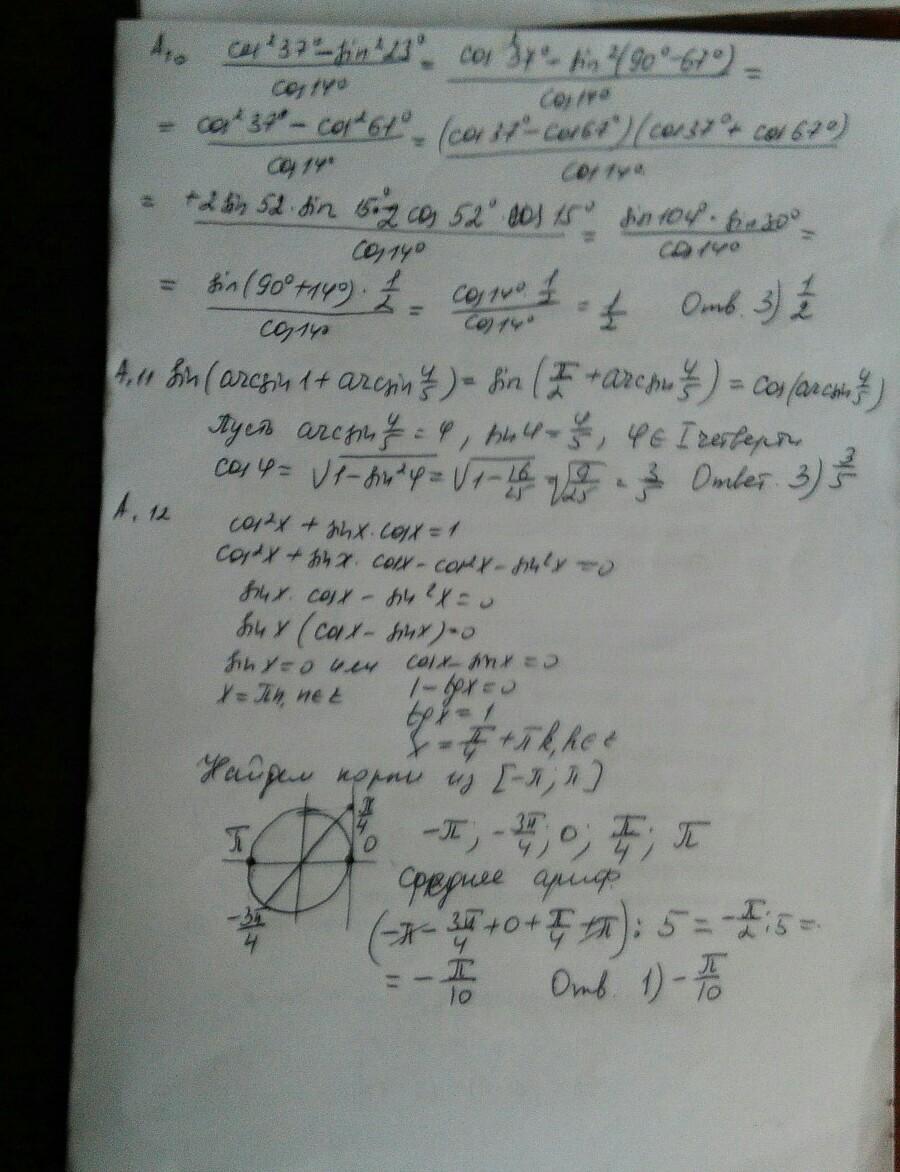 А10 (cos²37° − sin²23°)/cos14° = (cos²37° − sin²(90°−67°))/cos14° =
= (cos²37° − cos²67°)/cos14° = (cos37° − cos67°)(cos37° + cos67°)/cos14°
= (+2sin52·sin15°·2cos52°·cos15°)/cos14° = (sin104°·sin30°)/cos14° =
= (sin(90°+14°)·1/2)/cos14° = (cos14°·1/2)/cos14° = 1/2 Отв. 3) 1/2
А.11 sin(arcsin1 + arcsin 4/5) = sin(π/2 + arcsin 4/5) = cos(arcsin 4/5)
Пусть arcsin 4/5 = φ, sinφ = 4/5, φ ∈ I четверти
cosφ = √(1−sin²φ) = √(1−16/25) = √(9/25) = 3/5 Ответ. 3) 3/5
А.12 cos²x + sinx·cosx = 1
cos²x + sinx·cosx − cos²x − sin²x = 0
sinx·cosx − sin²x = 0
sinx(cosx − sinx) = 0
sinx = 0 или cosx − sinx = 0
x = πn, n∈z 1 − tgx = 0
tgx = 1
x = π/4 + πk, k∈z
Найдем корни из [−π; π]
π π/4 0 −3π/4
−π; −3π/4; 0; π/4; π
Среднее ариф.
(−π − 3π/4 + 0 + π/4 + π) : 5 = −π/2 : 5 =
= −π/10 Отв. 1) −π/10